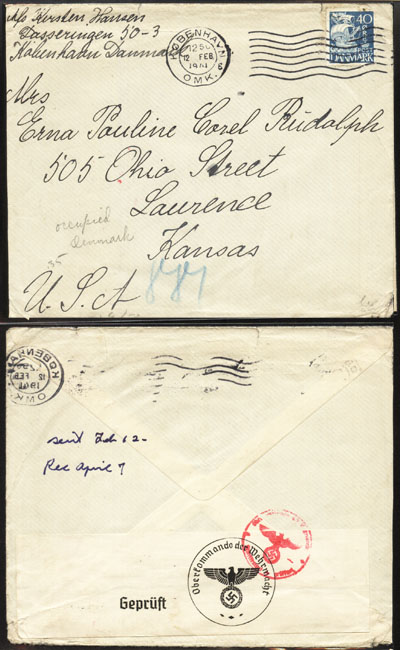 Kersten Hansen
Dasseringen 50-3
København Danmark
KØBENHAVN
12 FEB
1941
OMK.
40
DANMARK
Mrs
Erna Pauline Corel Rudolph
505 Ohio Street
Laurence
Kansas
U.S.A
occupied
Denmark
35
KØBENHAVN
OMK.
sent Feb 12-
Rec April 7
Oberkommando der Wehrmacht
Geprüft